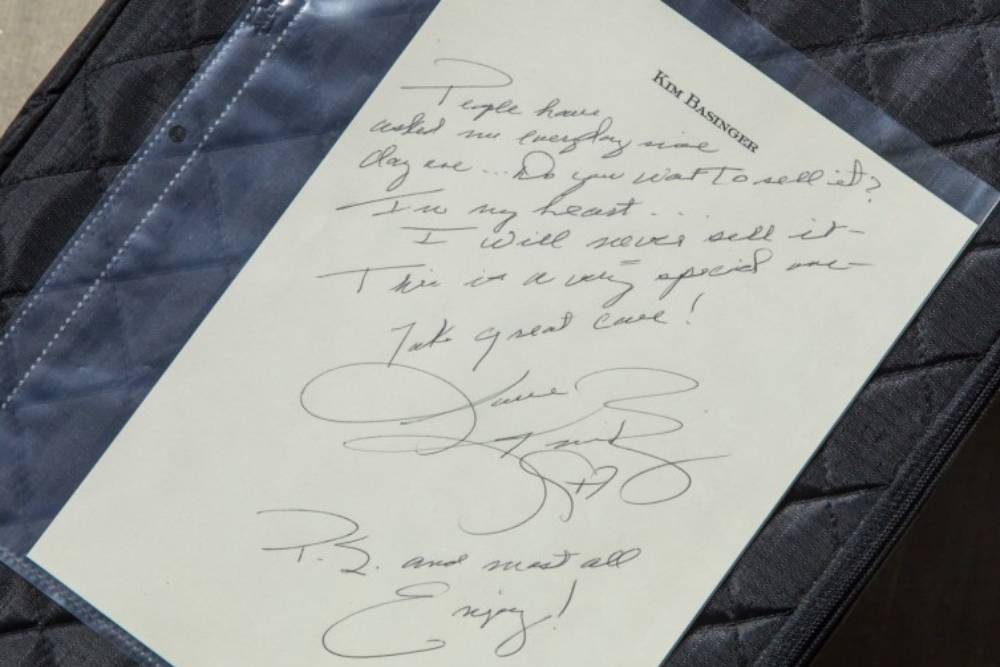 KIM BASINGER
People have
asked me everyday since
day one... Do you want to sell it?
In my heart...
I will never sell it-
This is a very special one-
Take great care!
Love
Kim B
P.S. and most all
Enjoy!